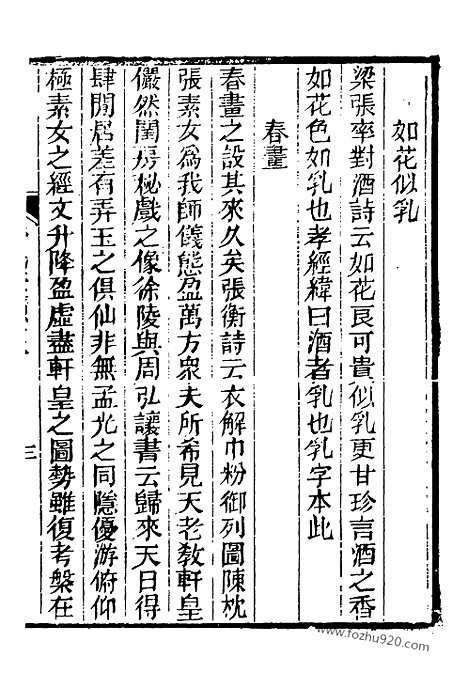 如花似乳
梁張率對酒詩云如花良可貴似乳更甘珍言酒之香
如花色如乳也孝經緯曰酒者乳也乳字本此
春畫
春畫之設其來久矣張衡詩云衣解巾粉御列圖陳枕
張素女爲我師儀態盈萬方衆夫所希見天老敎軒皇
儼然閨房秘戲之像徐陵與周弘讓書云歸來天目得
肆閒居差有弄玉之俱仙非無孟光之同隱優游俯仰
極素女之經文升降盈虛盡軒皇之圖勢雖復考槃在
三
www.fozhu920.com